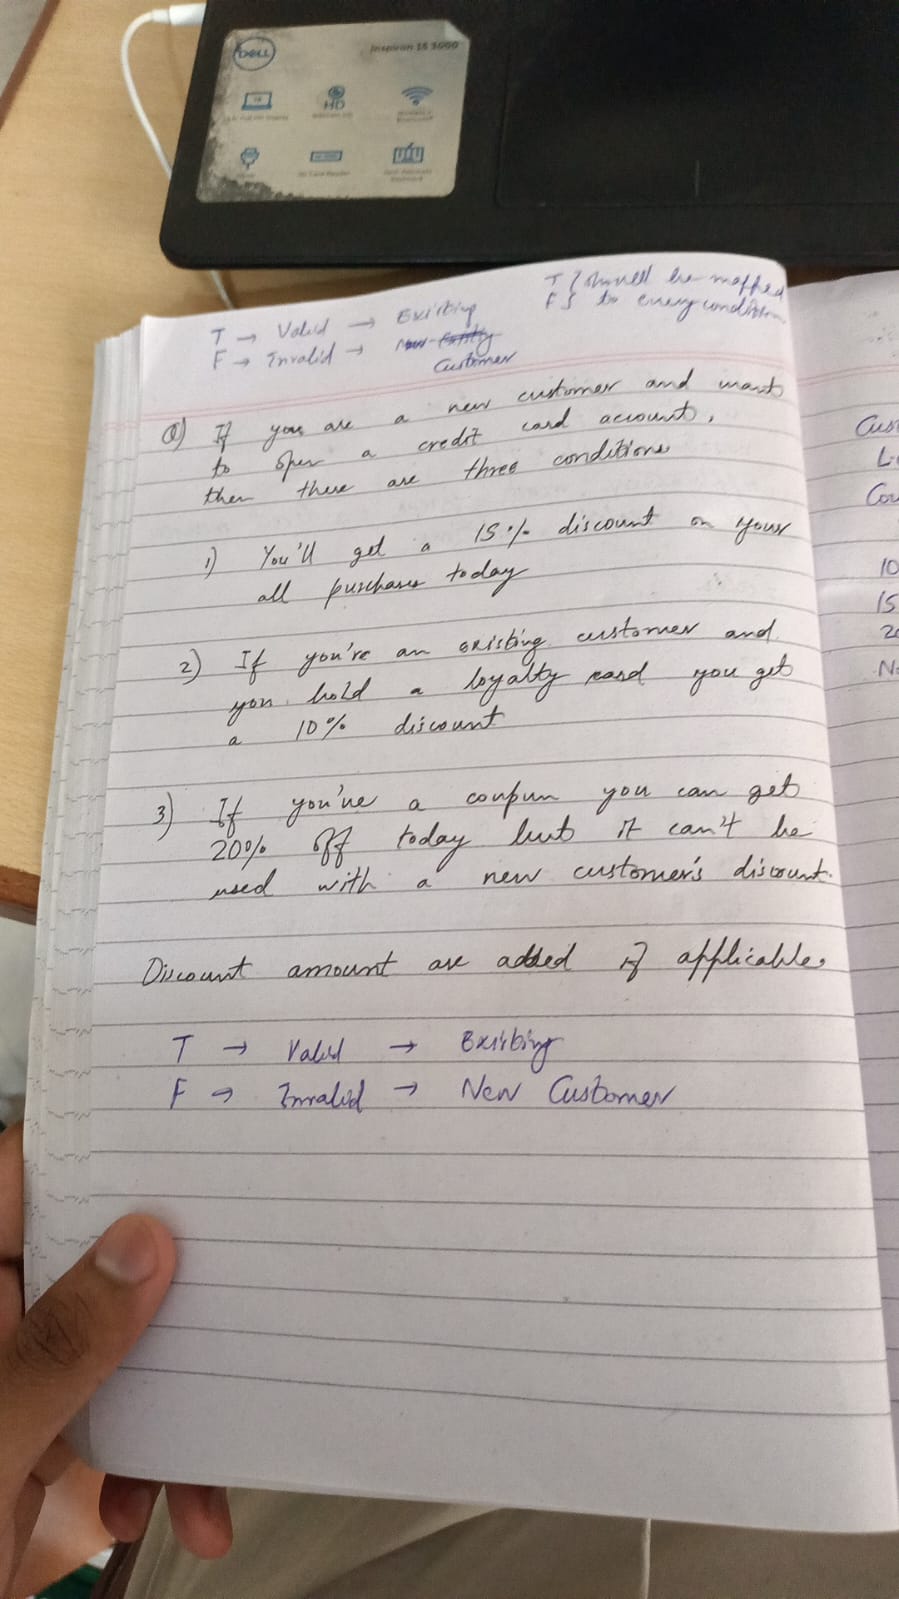 DELL
Inspiron 15 3000
HD
T → Valid → Existing
F → Invalid → New Entity
Customer
T } should be mapped
F } to every condition
Q) If you are a new customer and want
to open a credit card account,
then there are three conditions
1) You'll get a 15% discount on your
all purchases today
2) If you're an existing customer and
you hold a loyalty card you get
a 10% discount
3) If you've a coupun you can get
20% off today but it can't be
used with a new customer's discount.
Discount amount are added if applicable.
T → Valid → Existing
F → Invalid → New Customer
Cus
Cou
10
15